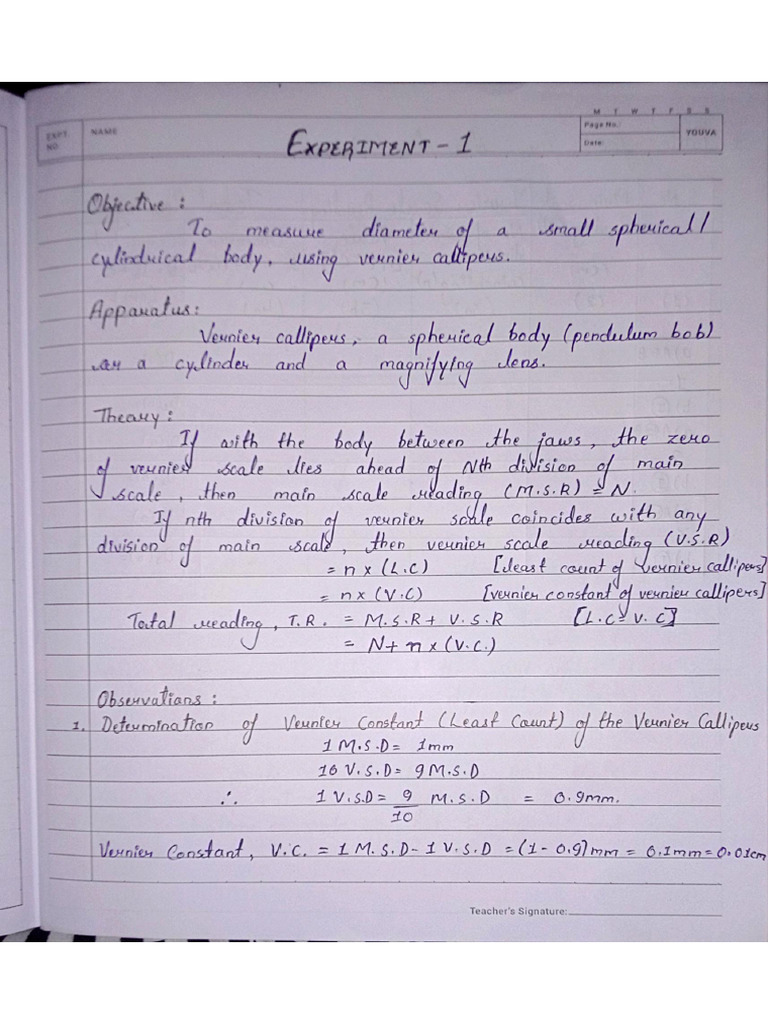 M T W T F S S
EXPT. NO. NAME Page No.: YOUVA
Date:
EXPERIMENT - 1
Objective :
To measure diameter of a small spherical/
cylindrical body, using vernier callipers.
Apparatus:
Vernier callipers, a spherical body (pendulum bob)
or a cylinder and a magnifying lens.
Theory :
If with the body between the jaws, the zero
of vernier scale lies ahead of Nth division of main
scale, then main scale reading (M.S.R) = N.
If nth division of vernier scale coincides with any
division of main scale, then vernier scale reading (V.S.R)
= n x (L.C) [least count of vernier callipers]
= n x (V.C) [vernier constant of vernier callipers]
Total reading, T.R. = M.S.R + V.S.R [L.C = V.C]
= N + n x (V.C.)
Observations :
1. Determination of Vernier Constant (Least Count) of the Vernier Callipers
1 M.S.D = 1mm
10 V.S.D = 9 M.S.D
∴ 1 V.S.D = 9/10 M.S.D = 0.9mm.
Vernier Constant, V.C. = 1 M.S.D - 1 V.S.D = (1 - 0.9) mm = 0.1mm = 0.01cm
Teacher's Signature: